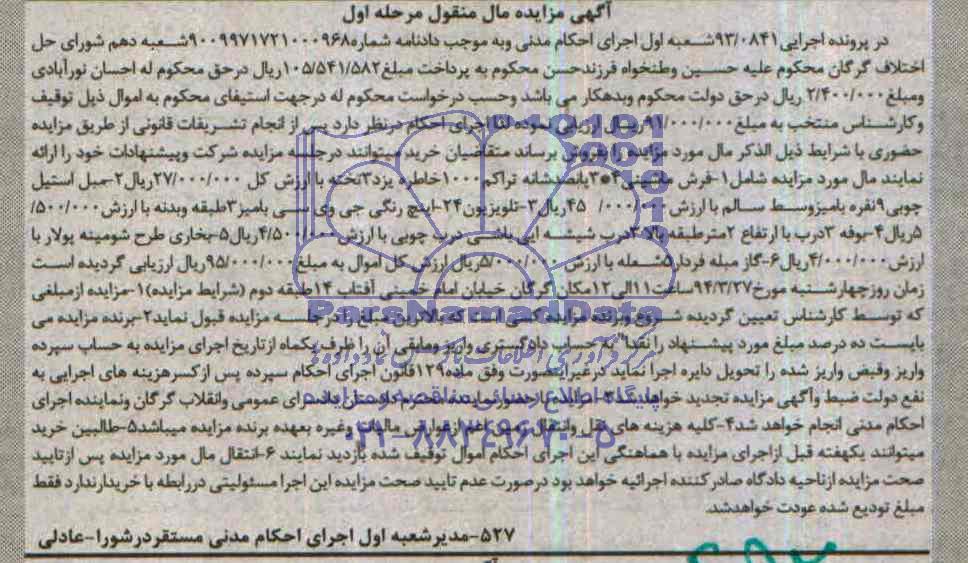 آگهی مزایده مال منقول مرحله اول
در پرونده اجرایی ۹۳/۰۸۴۱شعبه اول اجرای احکام مدنی وبه موجب دادنامه شماره۹۰۰۹۹۷۱۷۲۱۰۰۰۹۶۸شعبه دهم شورای حل
اختلاف گرگان محکوم علیه حسین وطنخواه فرزندحسن محکوم به پرداخت مبلغ۱۰۵/۵۴۱/۵۸۲ریال درحق محکوم له احسان نورآبادی
ومبلغ۲/۴۰۰/۰۰۰ ریال درحق دولت محکوم وبدهکار می باشد وحسب درخواست محکوم له درجهت استیفای محکوم به اموال ذیل توقیف
وکارشناس منتخب به مبلغ۹۱/۰۰۰/۰۰۰ریال ارزیابی نموده لذا اجرای احکام درنظر دارد پس از انجام تشریفات قانونی از طریق مزایده
حضوری با شرایط ذیل الذکر مال مورد مزایده را بفروش برساند متقاضیان خرید میتوانند درجلسه مزایده شرکت وپیشنهادات خود را ارائه
نمایند مال مورد مزایده شامل۱-فرش ماشینی۴*۳پانصدشانه تراکم ۱۰۰۰خاطره یزد۳تخته با ارزش کل ۲۷/۰۰۰/۰۰۰ریال۲-مبل استیل
چوبی۹نفره بامیزوسط سالم با ارزش۰۰۰/۰۰۰/ ۴۵ریال۳-تلویزیون۲۴-اینچ رنگی جی وی سی بامیز۳طبقه وبدنه با ارزش۵۰۰/۰۰۰/
۵ریال۴-بوفه ۳درب با ارتفاع ۲مترطبقه بالا۳درب شیشه ایی پائینی درب چوبی با ارزش۴/۵۰۰/۰۰۰ریال۵-بخاری طرح شومینه پولار با
ارزش۴/۰۰۰/۰۰۰ریال۶-گاز مبله فردار۵شعله با ارزش ۵/۰۰۰/۰۰۰ریال ارزش کل اموال به مبلغ۹۵/۰۰۰/۰۰۰ریال ارزیابی گردیده است
زمان روزچهارشنبه مورخ۹۴/۳/۲۷ساعت۱۱الی۱۲مکان گرگان خیابان امام خمینی آفتاب ۱۴طبقه دوم (شرایط مزایده)۱-مزایده ازمبلغی
که توسط کارشناس تعیین گردیده شروع وبرنده مزایده کسی است که بالاترین مبلغ را درجلسه مزایده قبول نماید۲-برنده مزایده می
بایست ده درصد مبلغ مورد پیشنهاد را نقدا" به حساب دادگستری واریز ومابقی آن را ظرف یکماه ازتاریخ اجرای مزایده به حساب سپرده
واریز وقبض واریز شده را تحویل دایره اجرا نماید درغیراینصورت وفق ماده۱۲۹قانون اجرای احکام سپرده پس ازکسرهزینه های اجرایی به
نفع دولت ضبط وآگهی مزایده تجدید خواهد شد۳-مزایده باحضورنماینده محترم دادستان دادسرای عمومی وانقلاب گرگان ونماینده اجرای
احکام مدنی انجام خواهد شد۴-کلیه هزینه های نقل وانتقال رسمی اعم ازعوارض مالیات وغیره بعهده برنده مزایده میباشد۵-طالبین خرید
میتوانند یکهفته قبل ازاجرای مزایده با هماهنگی این اجرای احکام اموال توقیف شده بازدید نمایند ۶-انتقال مال مورد مزایده پس ازتایید
صحت مزایده ازناحیه دادگاه صادرکننده اجرائیه خواهد بود درصورت عدم تایید صحت مزایده این اجرا مسئولیتی دررابطه با خریدارندارد فقط
مبلغ تودیع شده عودت خواهدشد.
۵۲۷-مدیرشعبه اول اجرای احکام مدنی مستقردرشورا-عادلی
ParsNamadData
پایگاه اطلاع رسانی مناقصه و مزایده
۰۲۱-۸۸۳۴۹۶۷۰-۵